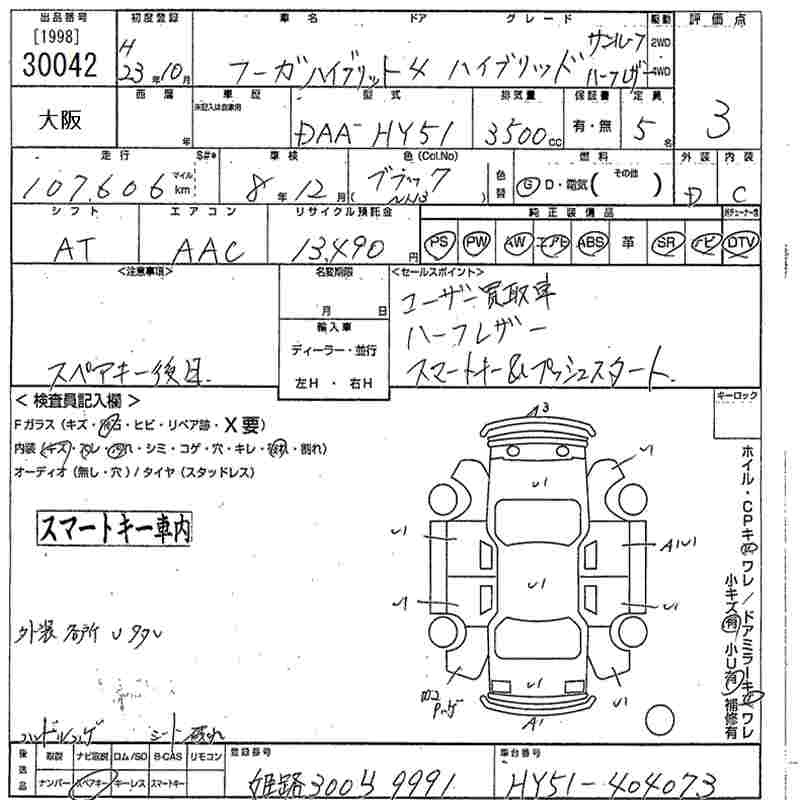 出品番号 初度登録 車名 ドア グレード 駆動 評価点
[1998] H サンルーフ 2WD
30042 23年10月 フーガハイブリッド 4 ハイブリッド ハーフレザー 4WD 3
西暦 年 車歴 型式 排気量 保証書 定員
未記入は自家用
大阪 DAA-HY51 3500cc 有・無 5名
走行 S#* 車検 色(Col.No) 色替 燃料 外装 内装
107,606 マイル km 8年12月 ブラック G D・電気( その他 ) D C
シフト エアコン リサイクル預託金 純正装備品
AT AAC 13,490円 PS PW AW エアB ABS 革 SR ナビ DTV
<注意事項> 名変期限 <セールスポイント>
月 日 ユーザー買取車
輸入車 ハーフレザー
ディーラー・並行
スペアキー後日. 左H・右H スマートキー&プッシュスタート
<検査員記入欄> キーロック
Fガラス(キズ・飛石・ヒビ・リペア跡・X要)
内装(キズ・スレ・汚れ・シミ・コゲ・穴・キレ・破れ・割れ)
オーディオ(無し・穴)/タイヤ(スタッドレス)
スマートキー車内
外装 各所 U タタU
A3
U1
U1
U1 A1U1
U1
U1 U1
U1 U1
A1
ホイル・CPキズ ワレ/ドアミラーキズ ワレ
小キズ有 小U有 補修有
ハンドルハゲ シート破れ
後送品 取説 ナビ取説 ロム/SD B-CAS リモコン 登録番号 車台番号
ナンバー スペアキー キーレス スマートキー 姫路300 9991 HY51-404073